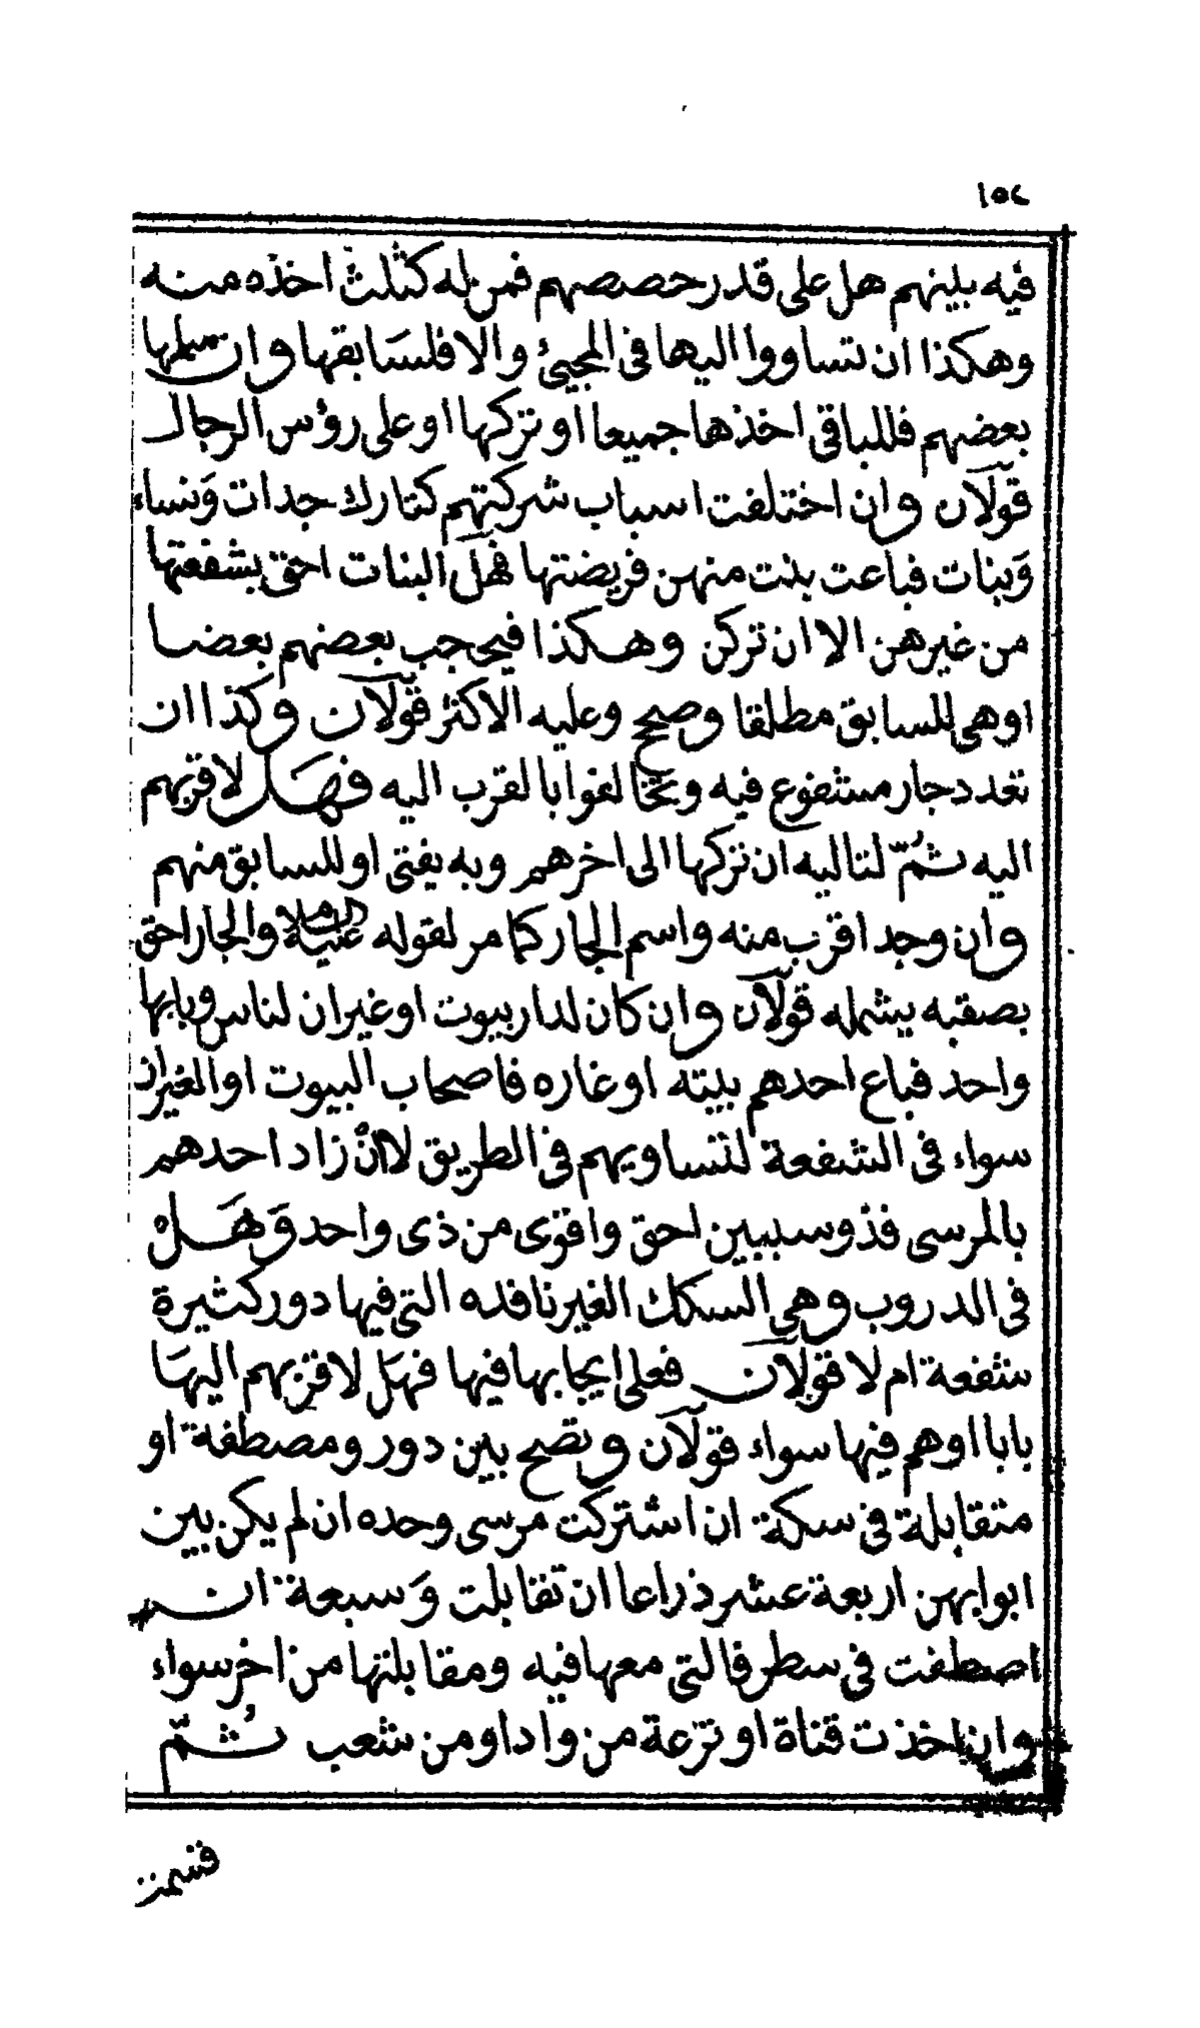 ١٥٤
فيه بينهم هل على قدر حصصهم فمن له كثلث اخذه منه
وهكذا ان تساووا اليها في المجيئ والا فلسابقها وان سلمها
بعضهم فللباقي اخذها جميعا او تركها او على رؤس الرجال
قولان وان اختلفت اسباب شركتهم كتارك جدات ونساء
وبنات فباعت بنت منهن فريضتها فهل البنات احق بشفعتها
من غيرهن الا ان تركن وهكذا فيحجب بعضهم بعضا
اوهي للسابق مطلقا وصحح وعليه الاكثر قولان وكذا ان
تعدد جار مشفوع فيه وتخالفوا بالقرب اليه فهل لاقربهم
اليه ثم لتاليه ان تركها الى اخرهم وبه يفتى او للسابق منهم
وان وجد اقرب منه واسم الجار كما مر لقوله عليه السلام والجار احق
بصقبه يشمله قولان وان كان لدار بيوت او غيران لناس وبابها
واحد فباع احدهم بيته او غاره فاصحاب البيوت او الغيران
سواء في الشفعة لتساويهم في الطريق لا ان زاد احدهم
بالمرسى فذو سببين احق واقوى من ذي واحد وهل
في الدروب وهي السكك الغير نافذه التي فيها دور كثيرة
شفعة ام لا قولان فعلى ايجابها فيها فهل لاقربهم اليها
بابا اوهم فيها سواء قولان وتصح بين دور ومصطفة او
متقابلة في سكة ان اشتركت مرسى وحده ان لم يكن بين
ابوابهن اربعة عشر ذراعا ان تقابلت وسبعة ان
اصطفت في سطر فالتي معها فيه ومقابلتها من اخر سواء
وان اخذت قناة او ترعة من واد او من شعب ثم
قسمت